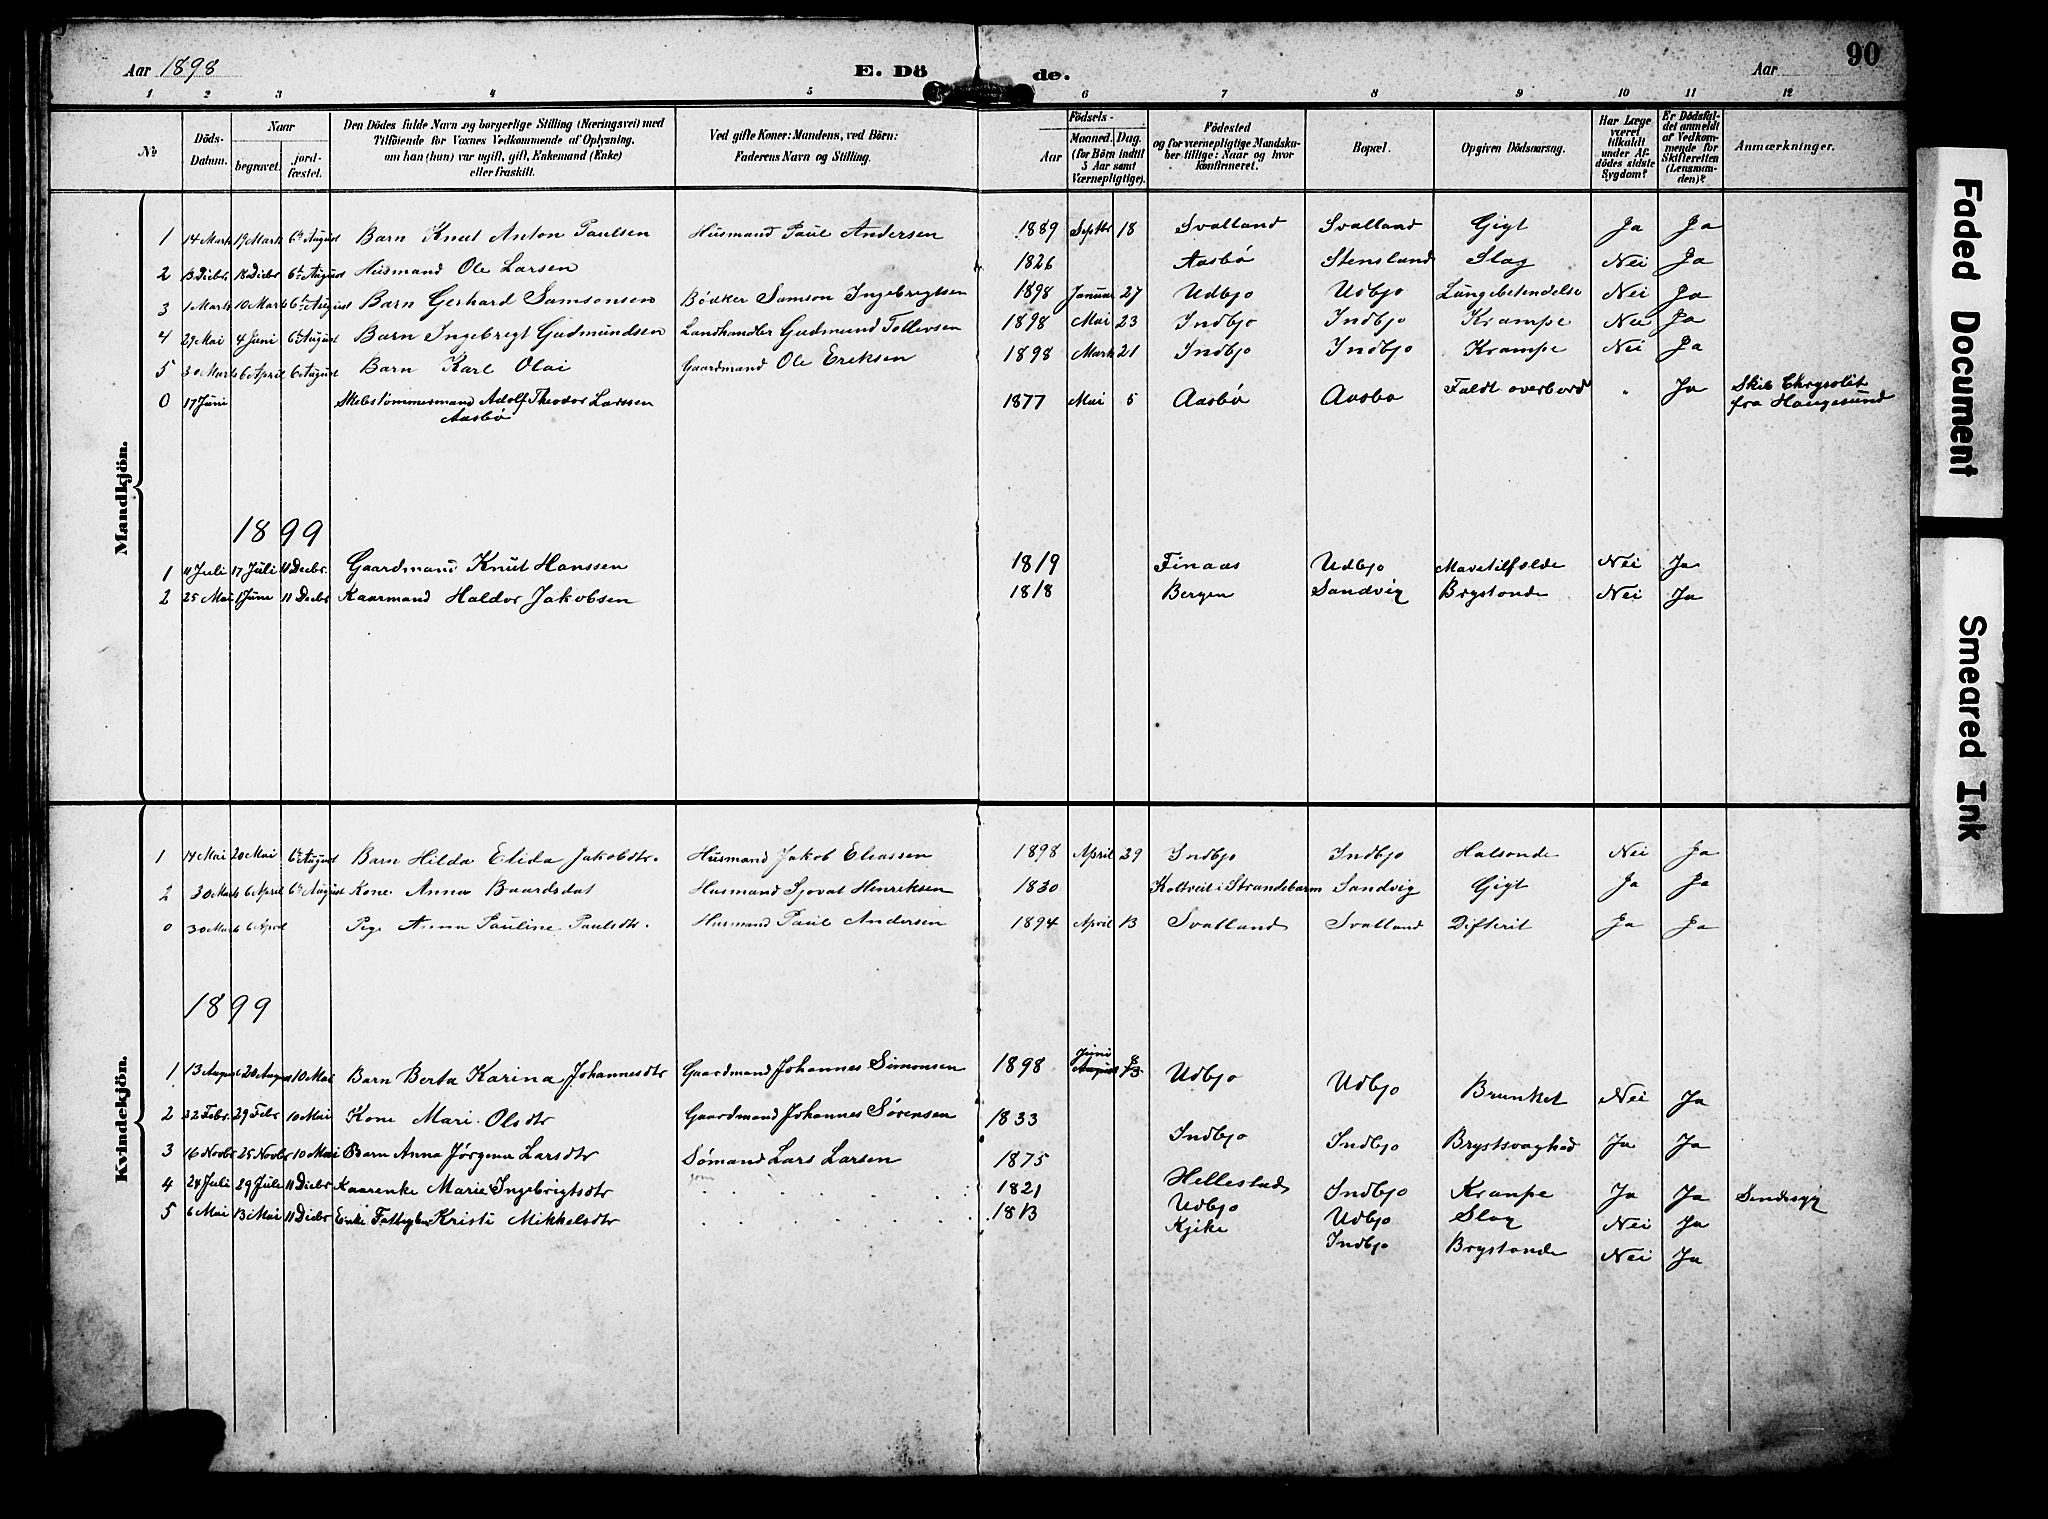 90
Aar 1898 E. Dö de. Aar
1 2 3 4 5 6 7 8 9 10 11 12
No
Döds-Datum.
Naar
begravet.
jordfæstet.
Den Dödes fulde Navn og borgerlige Stilling (Næringsvei) med
Tilföiende for Voxnes Vedkommende af Oplysning,
om han (hun) var ugift, gift, Enkemand (Enke)
eller fraskilt.
Ved gifte Koner: Mandens, ved Börn:
Faderens Navn og Stilling.
Födsels-
Aar
Maaned. Dag.
(for Börn indtil
5 Aar samt
Værnepligtige).
Födested
og for værnepligtige Mandska-
ber tillige: Naar og hvor
konfirmeret.
Bopæl.
Opgiven Dödsaarsag.
Har Læge
været
tilkaldt
under Af-
dödes sidste
Sygdom?
Er Dödsfal-
det anmeldt
af Vedkom-
mende for
Skifteretten
(Lensman-
den)?
Anmærkninger.
Mandkjön.
1 14 Marts 19 Marts 6te August Barn Knut Anton Paulsen Husmand Paul Andersen 1889 Septbr 18 Svalland Svalland Gigt Ja Ja
2 13 Decbr 18 Decbr 6te August Husmand Ole Larsen 1826 Aasbø Stensland Slag Nei Ja
3 1 Marts 10 Marts 6te August Barn Gerhard Samsonsen Bödker Samson Ingebrigtsen 1898 Januar 27 Udbjo Udbjo Lungebetendelse Nei Ja
4 29 Mai 4 Juni 6te August Barn Ingebrigt Gudmundsen Landhandler Gudmund Tollevsen 1898 Mai 23 Indbjo Indbjo Krampe Nei Ja
5 30 Marts 6 April 6 August Barn Karl Olai Gaardmand Ole Eriksen 1898 Marts 21 Indbjo Indbjo Krampe Nei Ja
0 17 Juni Skibstömmermand Adolf Theodor Larssen 1877 Mai 5 Aasbø Aasbø Faldt overbord " Ja Skib Chrysolit
Aasbø fra Haugesund
1899
1 11 Juli 17 Juli 11 Decbr. Gaardmand Knut Hanssen 1819 Finaas Udbjo Mavetilfelde Nei Ja
2 25 Mai 1 Juni 11 Decbr Kaarmand Haldor Jakobsen 1818 Bergen Sandvig Brystonde Nei Ja
Kvindekjön.
1 14 Mai 20 Mai 6te August Barn Hilda Elida Jakobdtr. Husmand Jakob Eliassen 1898 April 29 Indbjo Indbjo Halsonde Nei Ja
2 30 Marts 6 April 6te August Kone Anna Baardsdat Husmand Sjovat Henriksen 1830 Koltveit i Strandebarm Sandvig Gigt Ja Ja
0 30 Marts 6 April Pige Anna Pauline Paulsdtr. Husmand Paul Andersen 1894 April 13 Svalland Svalland Difterit Ja Ja
1899
1 13 August 20 August 10 Mai Barn Berta Karina Johannesdtr Gaardmand Johannes Simonsen 1898 Juni 8 August 13 Udbjo Udbjo Brunket Nei Ja
2 22 Febr. 29 Febr 10 Mai Kone Mari Olsdtr Gaardmand Johannes Sørensen 1833 Indbjo Indbjo Brystsvaghed Ja Ja
3 16 Novbr 25 Novbr 10 Mai Barn Anna Jørgena Larsdtr Sømand Lars Larsen 1875 Hellestad Indbjo Krampe Ja Ja Sindssyg
4 24 Juli 29 Juli 11 Decbr Kaarenke Marie Ingebrigtsdtr 1821 Udbjo Udbjo Slag Nei Ja
5 6 Mai 13 Mai 11 Decbr Enke Kristi Mikkelsdtr 1813 Kjike Indbjo Brystonde Nei Ja
Faded Document
Smeared Ink